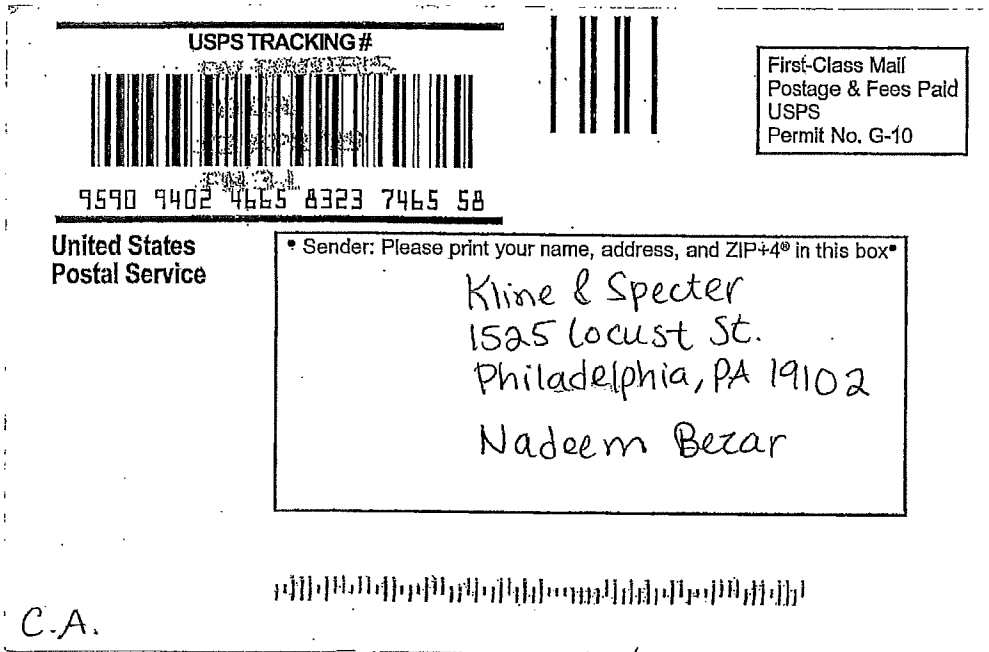 USPS TRACKING #
9590 9402 4665 8323 7465 58
First-Class Mail
Postage & Fees Paid
USPS
Permit No. G-10
United States
Postal Service
• Sender: Please print your name, address, and ZIP+4® in this box•
Kline & Specter
1525 Locust St.
Philadelphia, PA 19102
Nadeem Bezar
C.A.